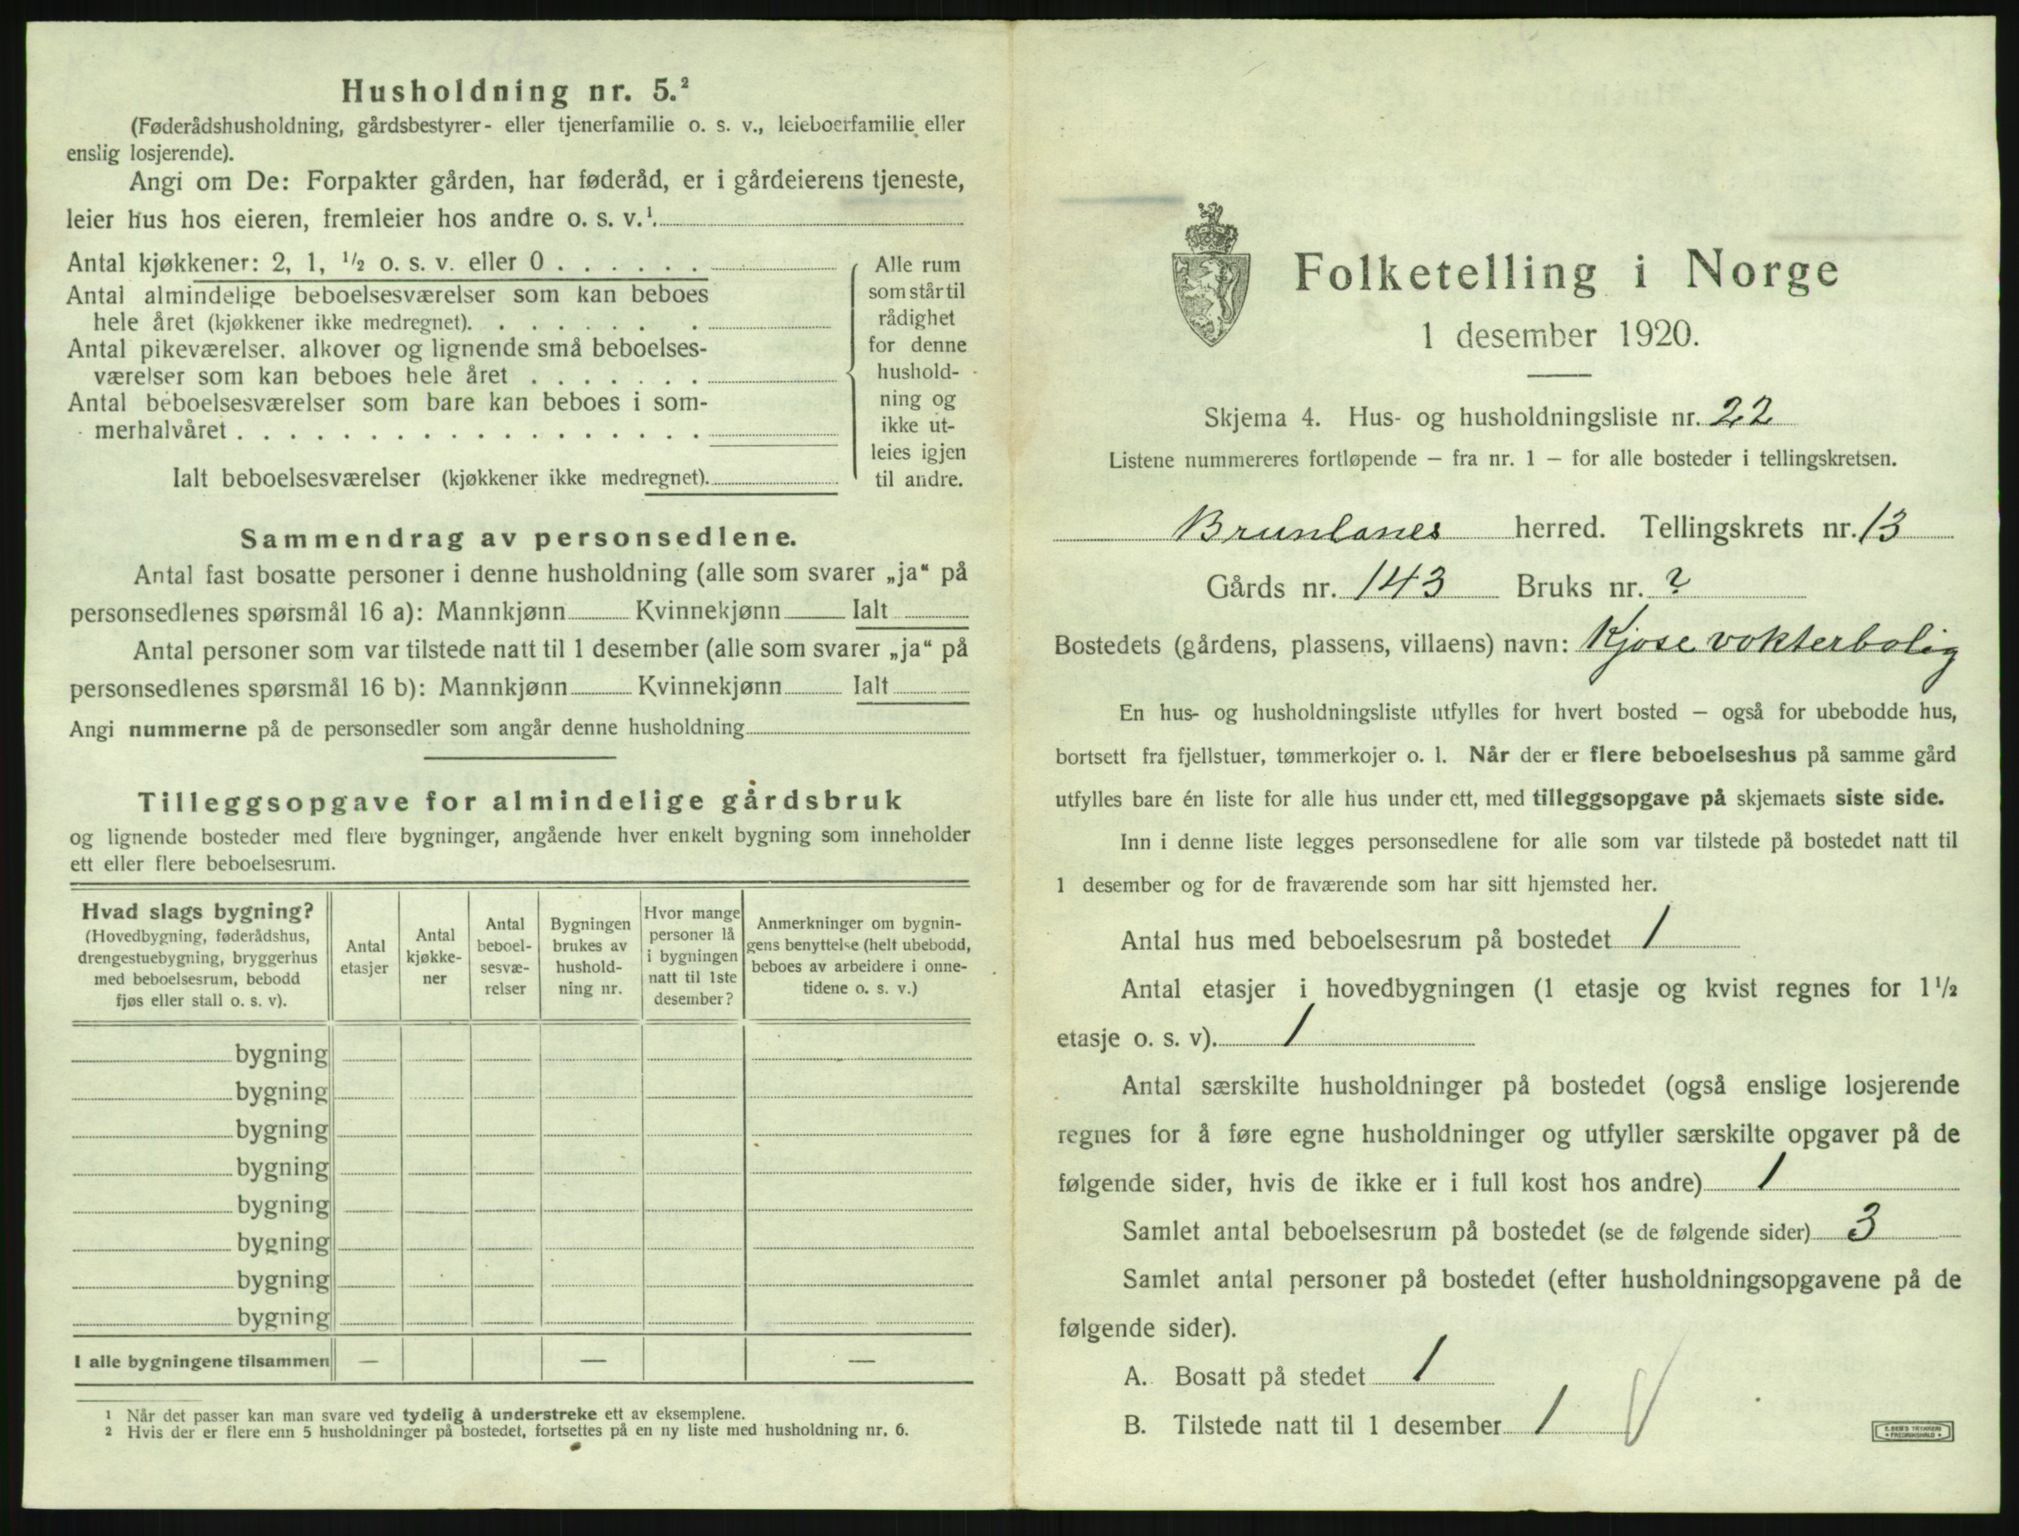 Husholdning nr. 5.²
(Føderådshusholdning, gårdsbestyrer- eller tjenerfamilie o. s. v., leieboerfamilie eller
enslig losjerende).
Angi om De: Forpakter gården, har føderåd, er i gårdeierens tjeneste,
leier hus hos eieren, fremleier hos andre o. s. v.¹.
Antal kjøkkener: 2, 1, ½ o. s. v. eller 0 . . . . . .
Antal almindelige beboelsesværelser som kan beboes
hele året (kjøkkener ikke medregnet). . . . . . . .
Antal pikeværelser, alkover og lignende små beboelses-
værelser som kan beboes hele året . . . . . . .
Antal beboelsesværelser som bare kan beboes i som-
merhalvåret . . . . . . . . . . . . . . . . . .
Ialt beboelsesværelser (kjøkkener ikke medregnet).
Alle rum
som står til
rådighet
for denne
hushold-
ning og
ikke ut-
leies igjen
til andre.
Sammendrag av personsedlene.
Antal fast bosatte personer i denne husholdning (alle som svarer „ja“ på
personsedlenes spørsmål 16 a): Mannkjønn Kvinnekjønn Ialt
Antal personer som var tilstede natt til 1 desember (alle som svarer „ja“ på
personsedlenes spørsmål 16 b): Mannkjønn Kvinnekjønn Ialt
Angi nummerne på de personsedler som angår denne husholdning
Tilleggsopgave for almindelige gårdsbruk
og lignende bosteder med flere bygninger, angående hver enkelt bygning som inneholder
ett eller flere beboelsesrum.
Hvad slags bygning?
(Hovedbygning, føderådshus,
drengestuebygning, bryggerhus
med beboelsesrum, bebodd
fjøs eller stall o. s. v).
Antal
etasjer
Antal
kjøkke-
ner
Antal
beboel-
sesvæ-
relser
Bygningen
brukes av
hushold-
ning nr.
Hvor mange
personer lå
i bygningen
natt til 1ste
desember?
Anmerkninger om bygnin-
gens benyttelse (helt ubebodd,
beboes av arbeidere i onne-
tidene o. s. v.)
bygning
bygning
bygning
bygning
bygning
bygning
bygning
bygning
I alle bygningene tilsammen — — —
¹ Når det passer kan man svare ved tydelig å understreke ett av eksemplene.
² Hvis der er flere enn 5 husholdninger på bostedet, fortsettes på en ny liste med husholdning nr. 6.
Folketelling i Norge
1 desember 1920.
Skjema 4. Hus- og husholdningsliste nr. 22
Listene nummereres fortløpende – fra nr. 1 – for alle bosteder i tellingskretsen.
Brunlanes herred. Tellingskrets nr. 13
Gårds nr. 143 Bruks nr. ?
Bostedets (gårdens, plassens, villaens) navn: Kjose vokterbolig
En hus- og husholdningsliste utfylles for hvert bosted – også for ubebodde hus,
bortsett fra fjellstuer, tømmerkojer o. l. Når der er flere beboelseshus på samme gård
utfylles bare én liste for alle hus under ett, med tilleggsopgave på skjemaets siste side.
Inn i denne liste legges personsedlene for alle som var tilstede på bostedet natt til
1 desember og for de fraværende som har sitt hjemsted her.
Antal hus med beboelsesrum på bostedet 1
Antal etasjer i hovedbygningen (1 etasje og kvist regnes for 1½
etasje o. s. v). 1
Antal særskilte husholdninger på bostedet (også enslige losjerende
regnes for å føre egne husholdninger og utfyller særskilte opgaver på de
følgende sider, hvis de ikke er i full kost hos andre) 1
Samlet antal beboelsesrum på bostedet (se de følgende sider) 3
Samlet antal personer på bostedet (efter husholdningsopgavene på de
følgende sider).
A. Bosatt på stedet 1
B. Tilstede natt til 1 desember 1